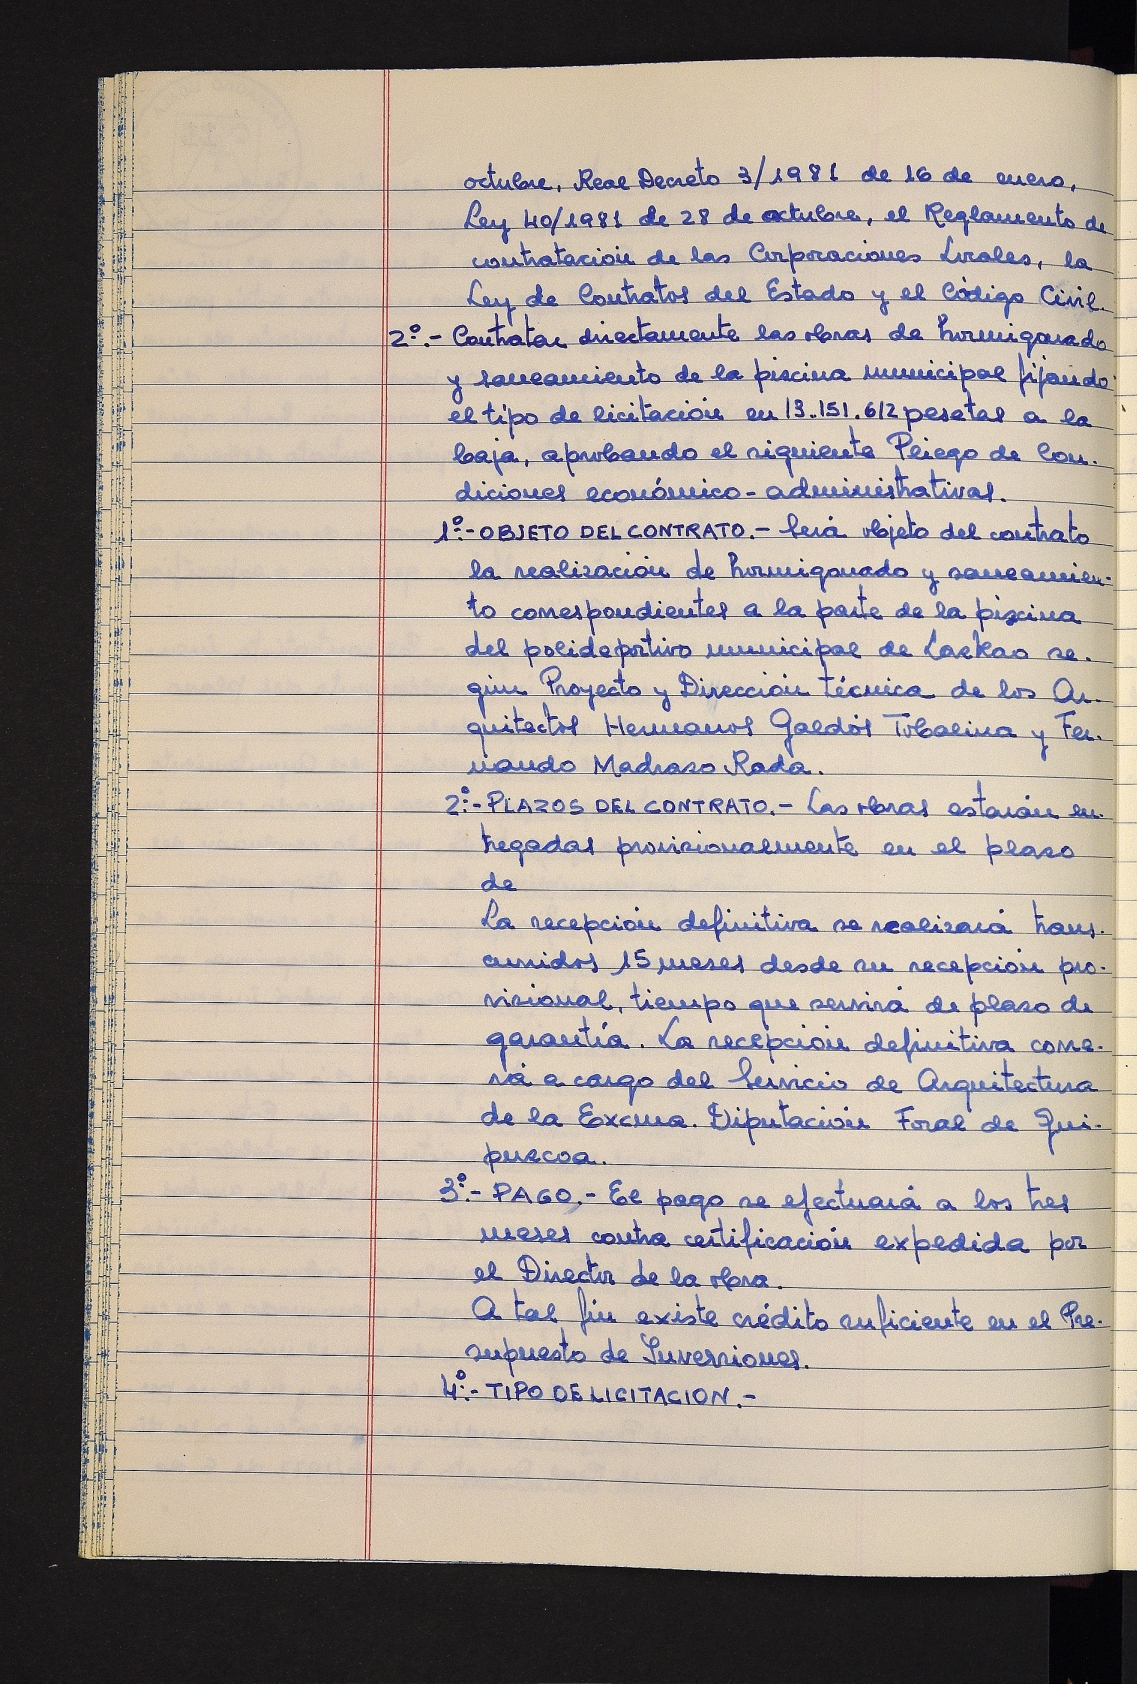 octubre, Real Decreto 3/1981 de 16 de enero,
Ley 40/1981 de 28 de octubre, el Reglamento de
contratación de las Corporaciones Locales, la
Ley de Contratos del Estado y el Código Civil.
2º.- Contratar directamente las obras de hormigonado
y saneamiento de la piscina municipal fijando
el tipo de licitación en 13.151.612 pesetas a la
baja, aprobando el siguiente Pliego de Con-
diciones económico-administrativas.
1º.- OBJETO DEL CONTRATO.- Será objeto del contrato
la realización de hormigonado y saneamien-
to correspondientes a la parte de la piscina
del polideportivo municipal de Lazkao se-
gún Proyecto y Dirección técnica de los Ar-
quitectos Hermanos Galdós Tobalina y Fer-
nando Madrazo Rada.
2º.- PLAZOS DEL CONTRATO.- Las obras estarán en-
tregadas provisionalmente en el plazo
de
La recepción definitiva se realizará trans-
curridos 15 meses desde su recepción pro-
visional, tiempo que servirá de plazo de
garantía. La recepción definitiva corre-
rá a cargo del Servicio de Arquitectura
de la Excma. Diputación Foral de Gui-
puzcoa.
3º.- PAGO.- El pago se efectuará a los tres
meses contra certificación expedida por
el Director de la obra.
A tal fin existe crédito suficiente en el Pre-
supuesto de Inversiones.
4º.- TIPO DE LICITACION.-